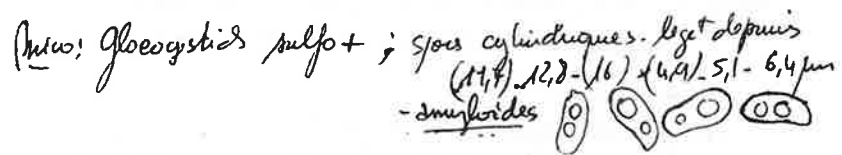 Micro: Gloeocystides sulfo + ; spores cylindriques. legt déprimés
(11,7)-12,8-(16) × (4,9)-5,1-6,4 µm
- amyloïdes